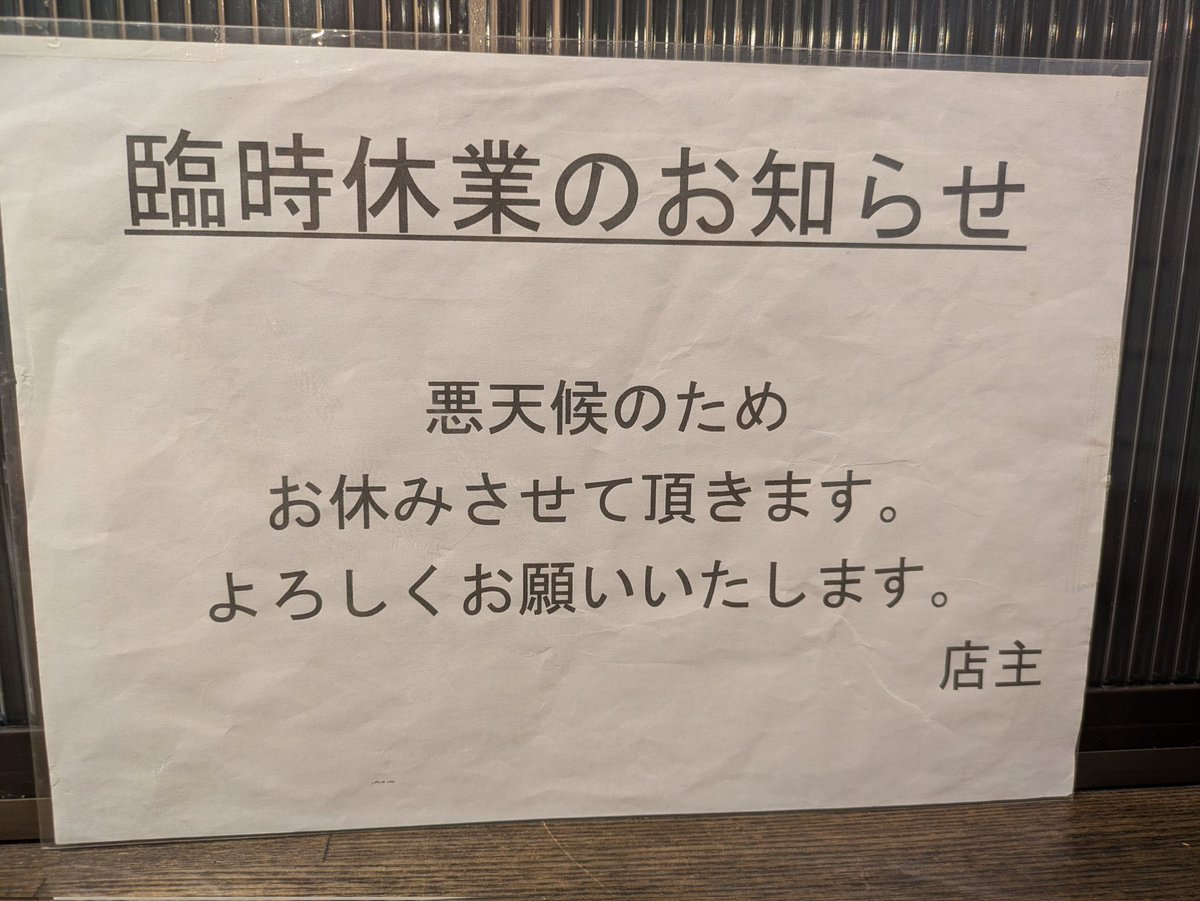 臨時休業のお知らせ
悪天候のため
お休みさせて頂きます。
よろしくお願いいたします。
店主